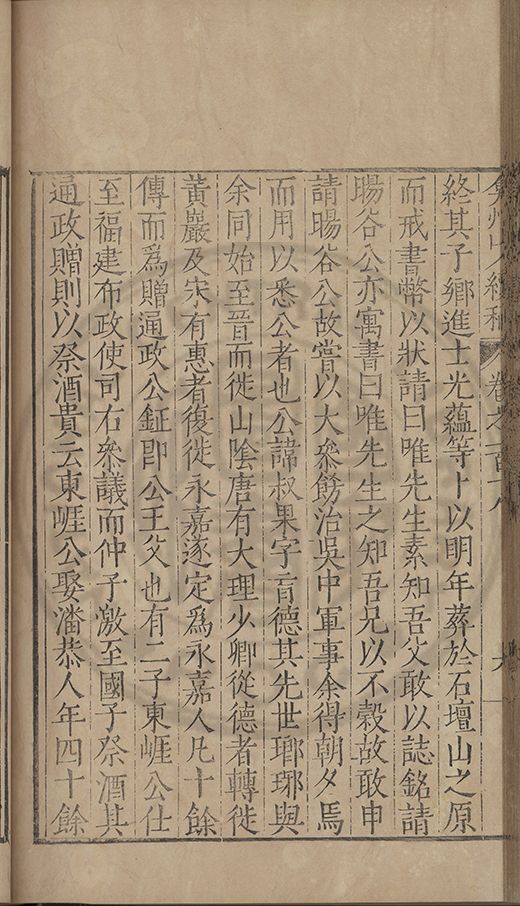 弇州山人續稿 卷之一百十八
終其子鄉進士光蘊等卜以明年葬於石壇山之原
而戒書幣以狀請曰唯先生素知吾父敢以誌銘請
暘谷公亦寓書曰唯先生之知吾兄以不榖故敢申
請暘谷公故嘗以大叅餝治吳中軍事余得朝夕焉
而用以悉公者也公諱叔果字育德其先世瑯琊與
余同始至晉而徙山陰唐有大理少卿從德者轉徙
黃巖及宋有惠者復徙永嘉遂定爲永嘉人凡十餘
傳而爲贈通政公鉦卽公王父也有二子東崕公仕
至福建布政使司右叅議而仲子激至國子祭酒其
通政贈則以祭酒貴云東崕公娶潘恭人年四十餘